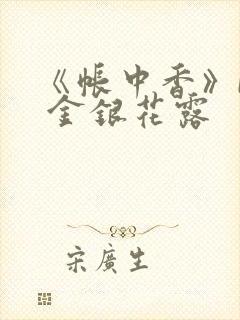 《帳中香》
金銀花露
宋廣生